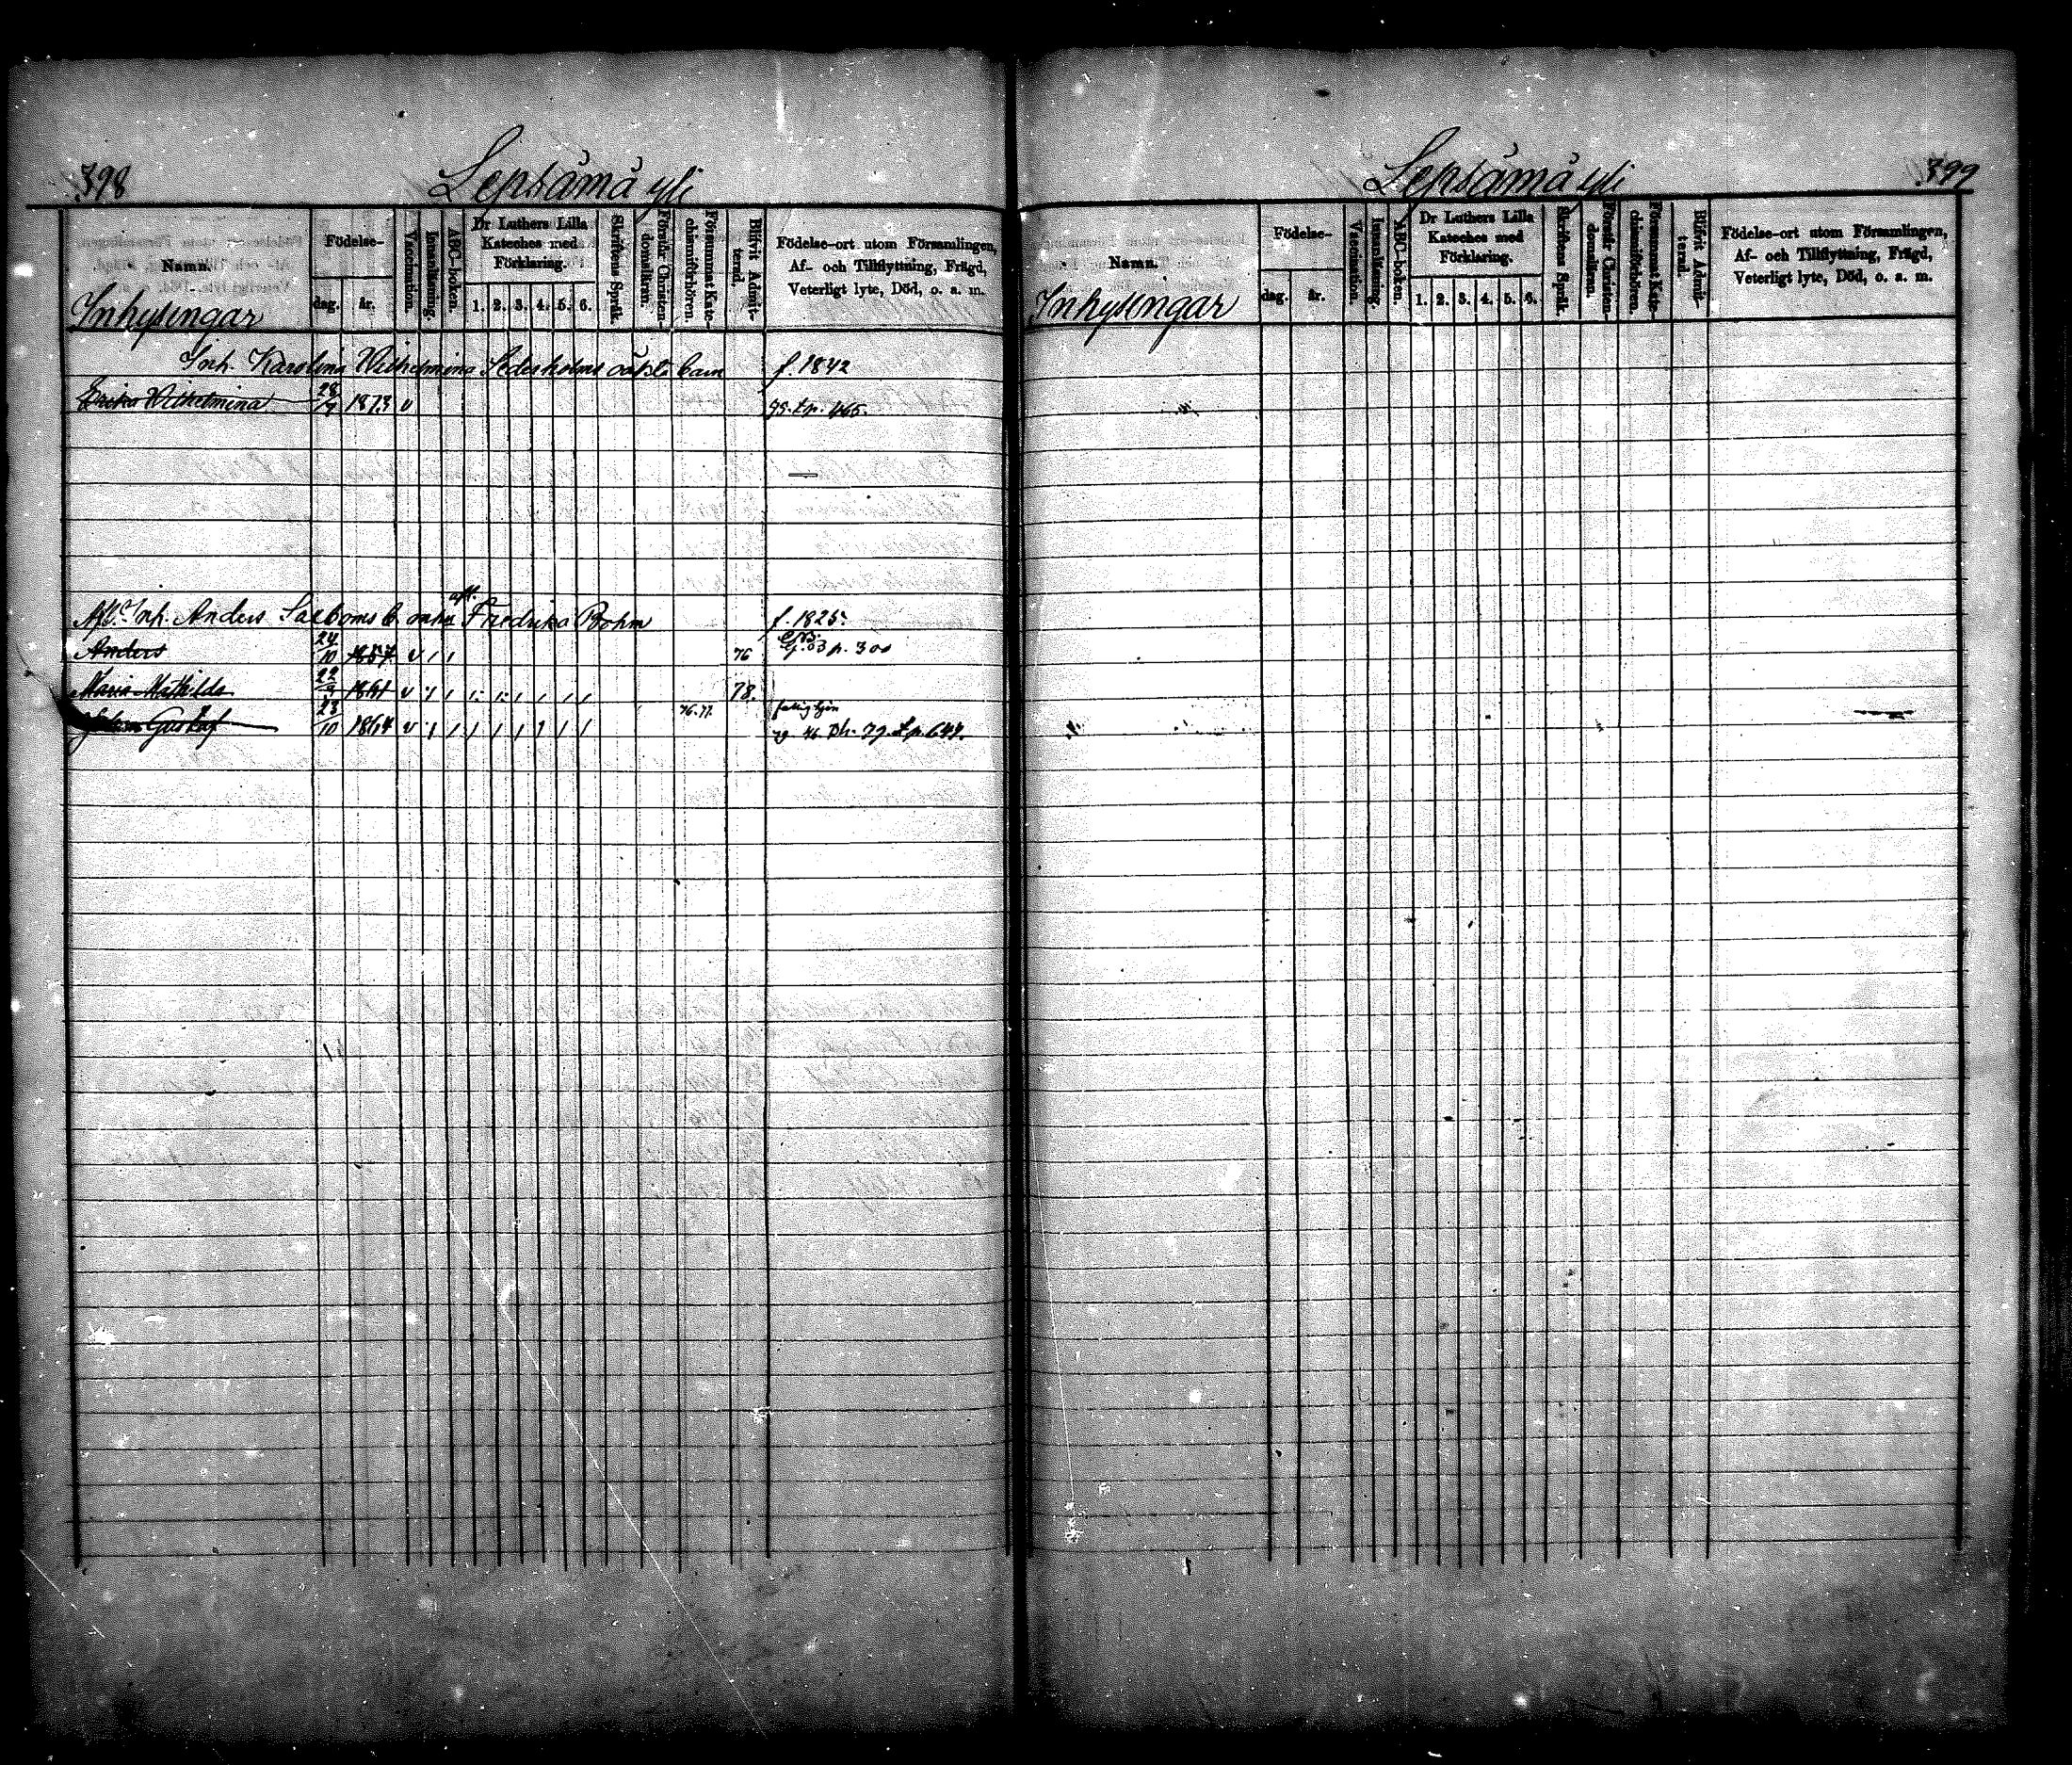 398
Lepsämä yli
Namn.
Inhysingar
Födelse-
dag.
år.
Vaccination.
Innanläsning.
ABC-boken.
Dr Luthers Lilla
Kateches med
Förklaring.
1. 2. 3. 4. 5. 6.
Skriftens Språk.
Förstår Christen-
domsläran.
Försummat Kate-
chismiförhören.
Blifvit Admit-
terad.
Födelse-ort utom Församlingen,
Af- och Tillflyttning, Frägd,
Veterligt lyte, Död, o. a. m.
Inh. Karolina Wilhelmina oäkta barn f. 1842
Erika Wilhelmina 28/7 1873 v 75. Lp. 465.
aft.
Afl. Inh. Anders Fredrika Bohm f. 1825.
Anders 24/10 1857 v / / 76 p. 300
Maria Mathilda 22 1861 v 78.
Johan Gustaf 23/10 1864 v / / / / / / / / 76. 77. 79. Lp. 647.
399
Lepsämä yli
Namn.
Inhysingar
Födelse-
dag.
år.
Vaccination.
Innanläsning.
ABC-boken.
Dr Luthers Lilla
Kateches med
Förklaring.
1. 2. 3. 4. 5. 6.
Skriftens Språk.
Förstår Christen-
domsläran.
Försummat Kate-
chismiförhören.
Blifvit Admit-
terad.
Födelse-ort utom Församlingen,
Af- och Tillflyttning, Frägd,
Veterligt lyte, Död, o. a. m.